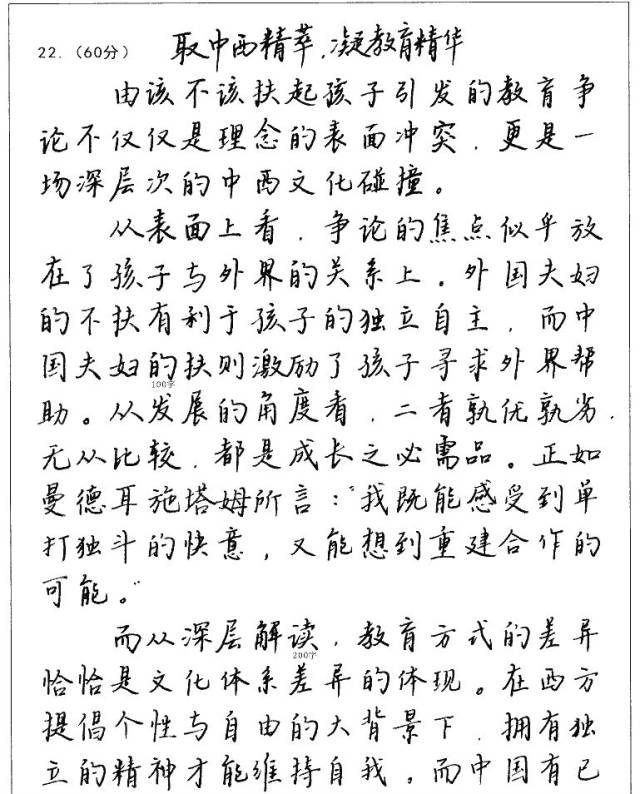 22.（60分） 取中西精萃,凝教育精华
由该不该扶起孩子引发的教育争
论不仅仅是理念的表面冲突，更是一
场深层次的中西文化碰撞。
从表面上看，争论的焦点似乎放
在了孩子与外界的关系上。外国夫妇
的不扶有利于孩子的独立自主，而中
国夫妇的扶则激励了孩子寻求外界帮
100字
助。从发展的角度看，二者孰优孰劣，
无从比较，都是成长之必需品。正如
曼德耳施塔姆所言："我既能感受到单
打独斗的快意，又能想到重建合作的
可能。"
而从深层解读，教育方式的差异
200字
恰恰是文化体系差异的体现。在西方
提倡个性与自由的大背景下，拥有独
立的精神才能维持自我。而中国有已